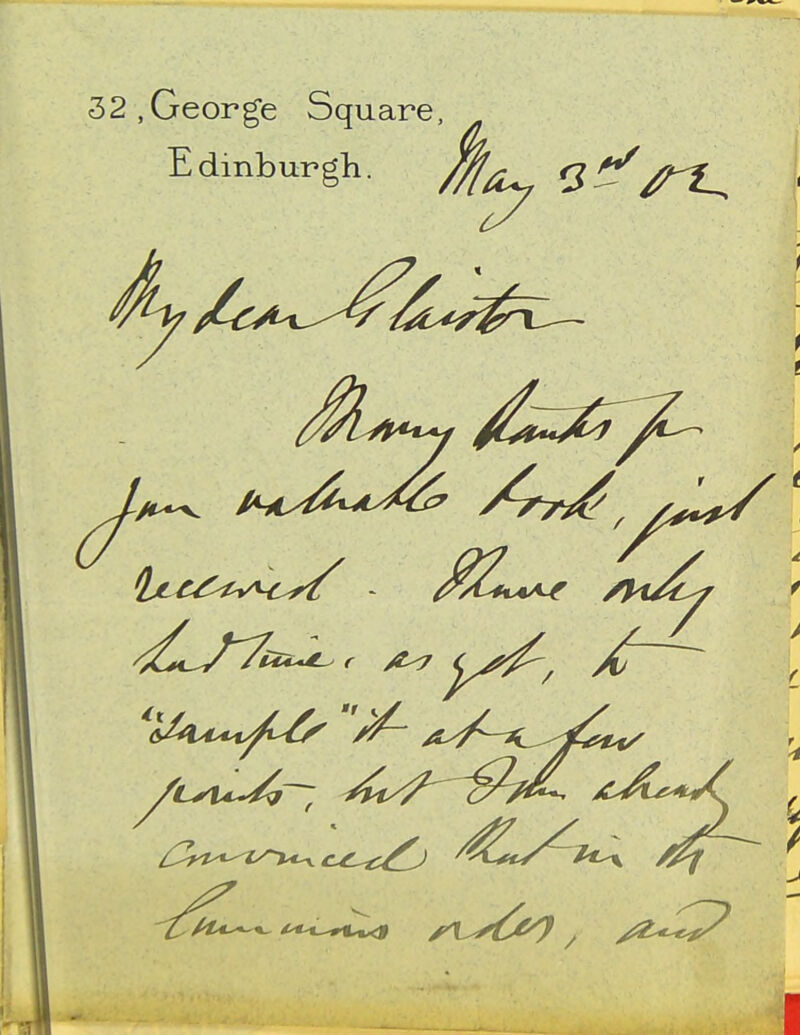 32, George Square,
Edinburgh.
May 3rd 02
My dear Glaister
Many thanks for
your valuable book, just
received. I have only
had time, as yet, to
"sample" it at a few
points, but I am already
convinced that in its
luminous order, and